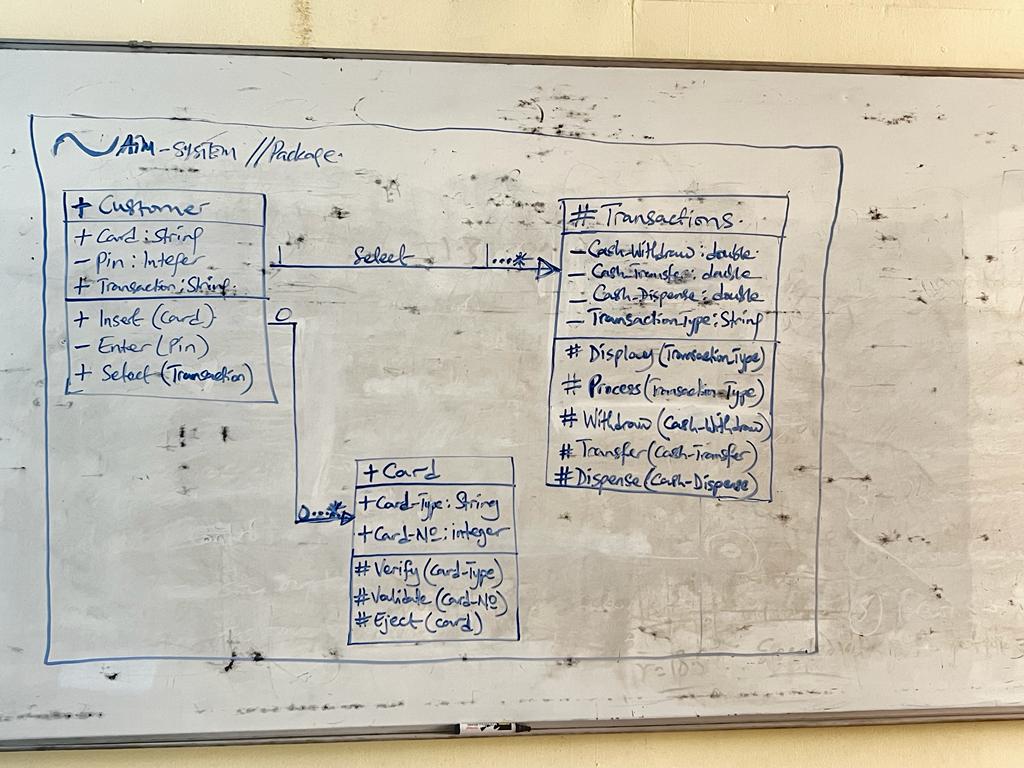 ~ ATM-SYSTEM //Package.
+ Customer
+ Card : String
- Pin : Integer
+ Transaction : String.
+ Insert (Card)
- Enter (Pin)
+ Select (Transaction)
1 Select 1...*
0
0...*
# Transactions.
- Cash-Withdraw : double.
- Cash-Transfer : double
- Cash-Dispense : double
- Transaction-Type : String
# Display (Transaction-Type)
# Process (Transaction-Type)
# Withdraw (Cash-Withdraw)
# Transfer (Cash-Transfer)
# Dispense (Cash-Dispense)
+ Card
+ Card-Type : String
+ Card-No : integer
# Verify (Card-Type)
# Validate (Card-No)
# Eject (card)